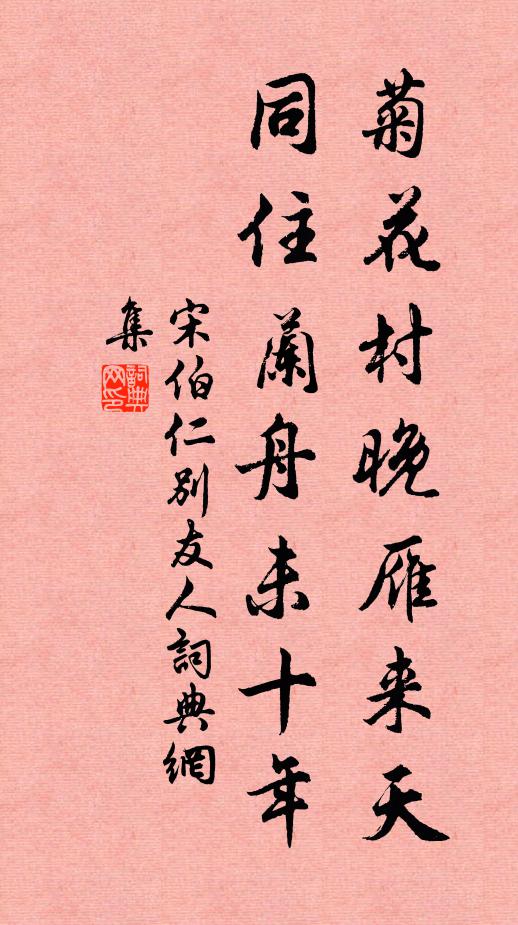 菊花村晚雁来天
同住蘭舟未十年
宋伯仁别友人詞典網
集
詞典
网印